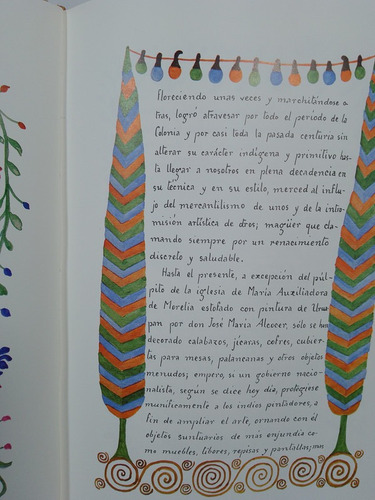 Floreciendo unas veces y marchitándose o
tras, logró atravesar por todo el período de la
Colonia y por casi toda la pasada centuria sin
alterar su carácter indígena y primitivo has
ta llegar a nosotros en plena decadencia en
su técnica y en su estilo, merced al influ
jo del mercantilismo de unos y de la intro
misión artística de otros; magüer que cla
mando siempre por un renacimiento
discreto y saludable.
Hasta el presente, a excepción del púl
pito de la iglesia de María Auxiliadora
de Morelia estofado con pintura de Urua
pan por don José María Alcocer, sólo se han
decorado calabazos, jícaras, cofres, cubier
tas para mesas, palanganas y otros objetos
menudos; empero, si un gobierno nacio
nalista, según se dice hoy día, protegiese
munificamente a los indios pintadores, a
fin de ampliar el arte, ornando con él
objetos suntuarios de más enjundia co
mo muebles, libores, repisas y pantallas;